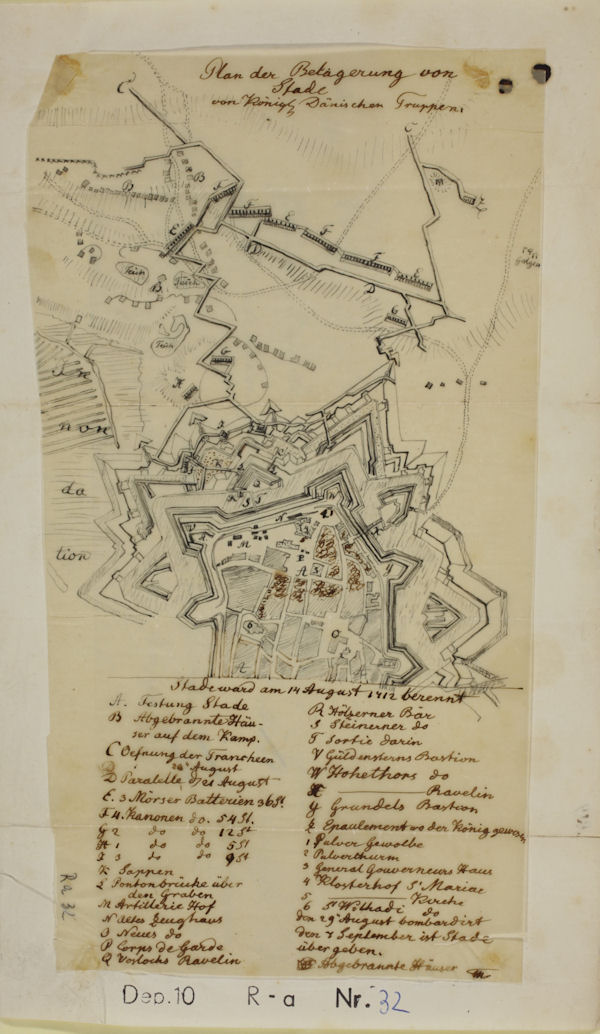 Plan der Belagerung von
Stade
von Königl Dänischen Truppen.
C
C
B
D
F
F
E
F
F
E
E
D
D
Z
Galgen
Teich
Teich
Teich
B
G
G
H
In
non
da
tion
K
K
S
S
W
M
N
A
O
A
A
Stade ward am 14 August 1712 berennt
A. Festung Stade
B Abgebrannte Häu-
ser auf dem Kamp.
C Oefnung der Trancheen
August
D Paralelle d 21 August
E. 3 Mörser Batterien 36 St.
F 4. Kanonen do. 54 St.
G 2 do do 12 St
H 1 do do 5 St
I 3 do do 9 St
K Sappen
L Pontonbrücke über
den Graben
M Artillerie Hof
N Altes Zeughaus
O Neues do
P Corps de Garde
Q Vorlochs Ravelin
R Hölzerner Bär
S Steinerner do
T Sortie darin
V Güldensterns Bastion
W Hohethors do
X ——— Ravelin
Y Grundels Bastion
Z Epaulement wo der König gewesen
1 Pulver Gewolbe
2 Pulverthurm
3 General Gouverneurs Haus
4 Klosterhof St Mariae
5 Kirche
6 St Wilhadi do
den 29 August bombardirt
den 7 September ist Stade
übergeben.
Abgebrannte Häuser
Ra 32
Dep. 10 R-a Nr. 32